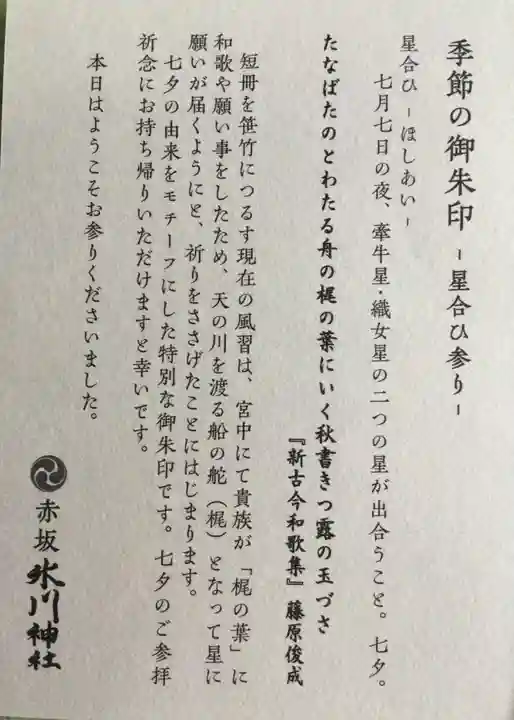 季節の御朱印 - 星合ひ参り -
星合ひ - ほしあい -
七月七日の夜、牽牛星・織女星の二つの星が出合うこと。七夕。
たなばたのとわたる舟の梶の葉にいく秋書きつ露の玉づさ
『新古今和歌集』藤原俊成
短冊を笹竹につるす現在の風習は、宮中にて貴族が「梶の葉」に
和歌や願い事をしたため、天の川を渡る船の舵(梶)となって星に
願いが届くようにと、祈りをささげたことにはじまります。
七夕の由来をモチーフにした特別な御朱印です。七夕のご参拝
祈念にお持ち帰りいただけますと幸いです。
本日はようこそお参りくださいました。
赤坂 氷川神社